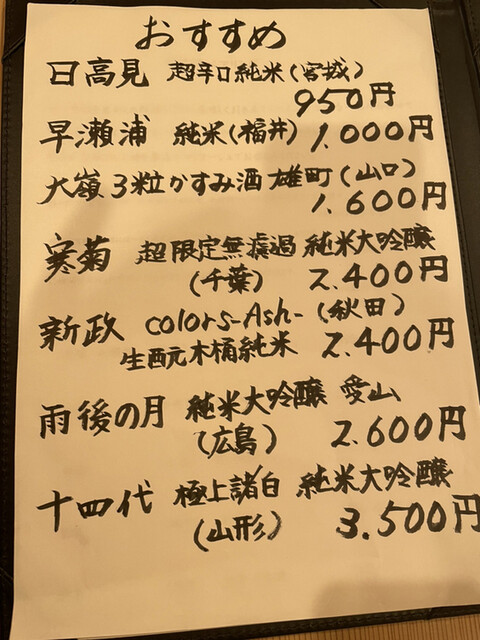 おすすめ
日高見 超辛口純米(宮城)
950円
早瀬浦 純米(福井) 1.000円
大嶺3粒かすみ酒 雄町(山口)
1.600円
寒菊 超限定無濾過 純米大吟醸
(千葉) 2.400円
新政 colors-Ash- (秋田)
生酛木桶純米 2.400円
雨後の月 純米大吟醸 愛山
(広島) 2.600円
十四代 極上諸白 純米大吟醸
(山形) 3.500円